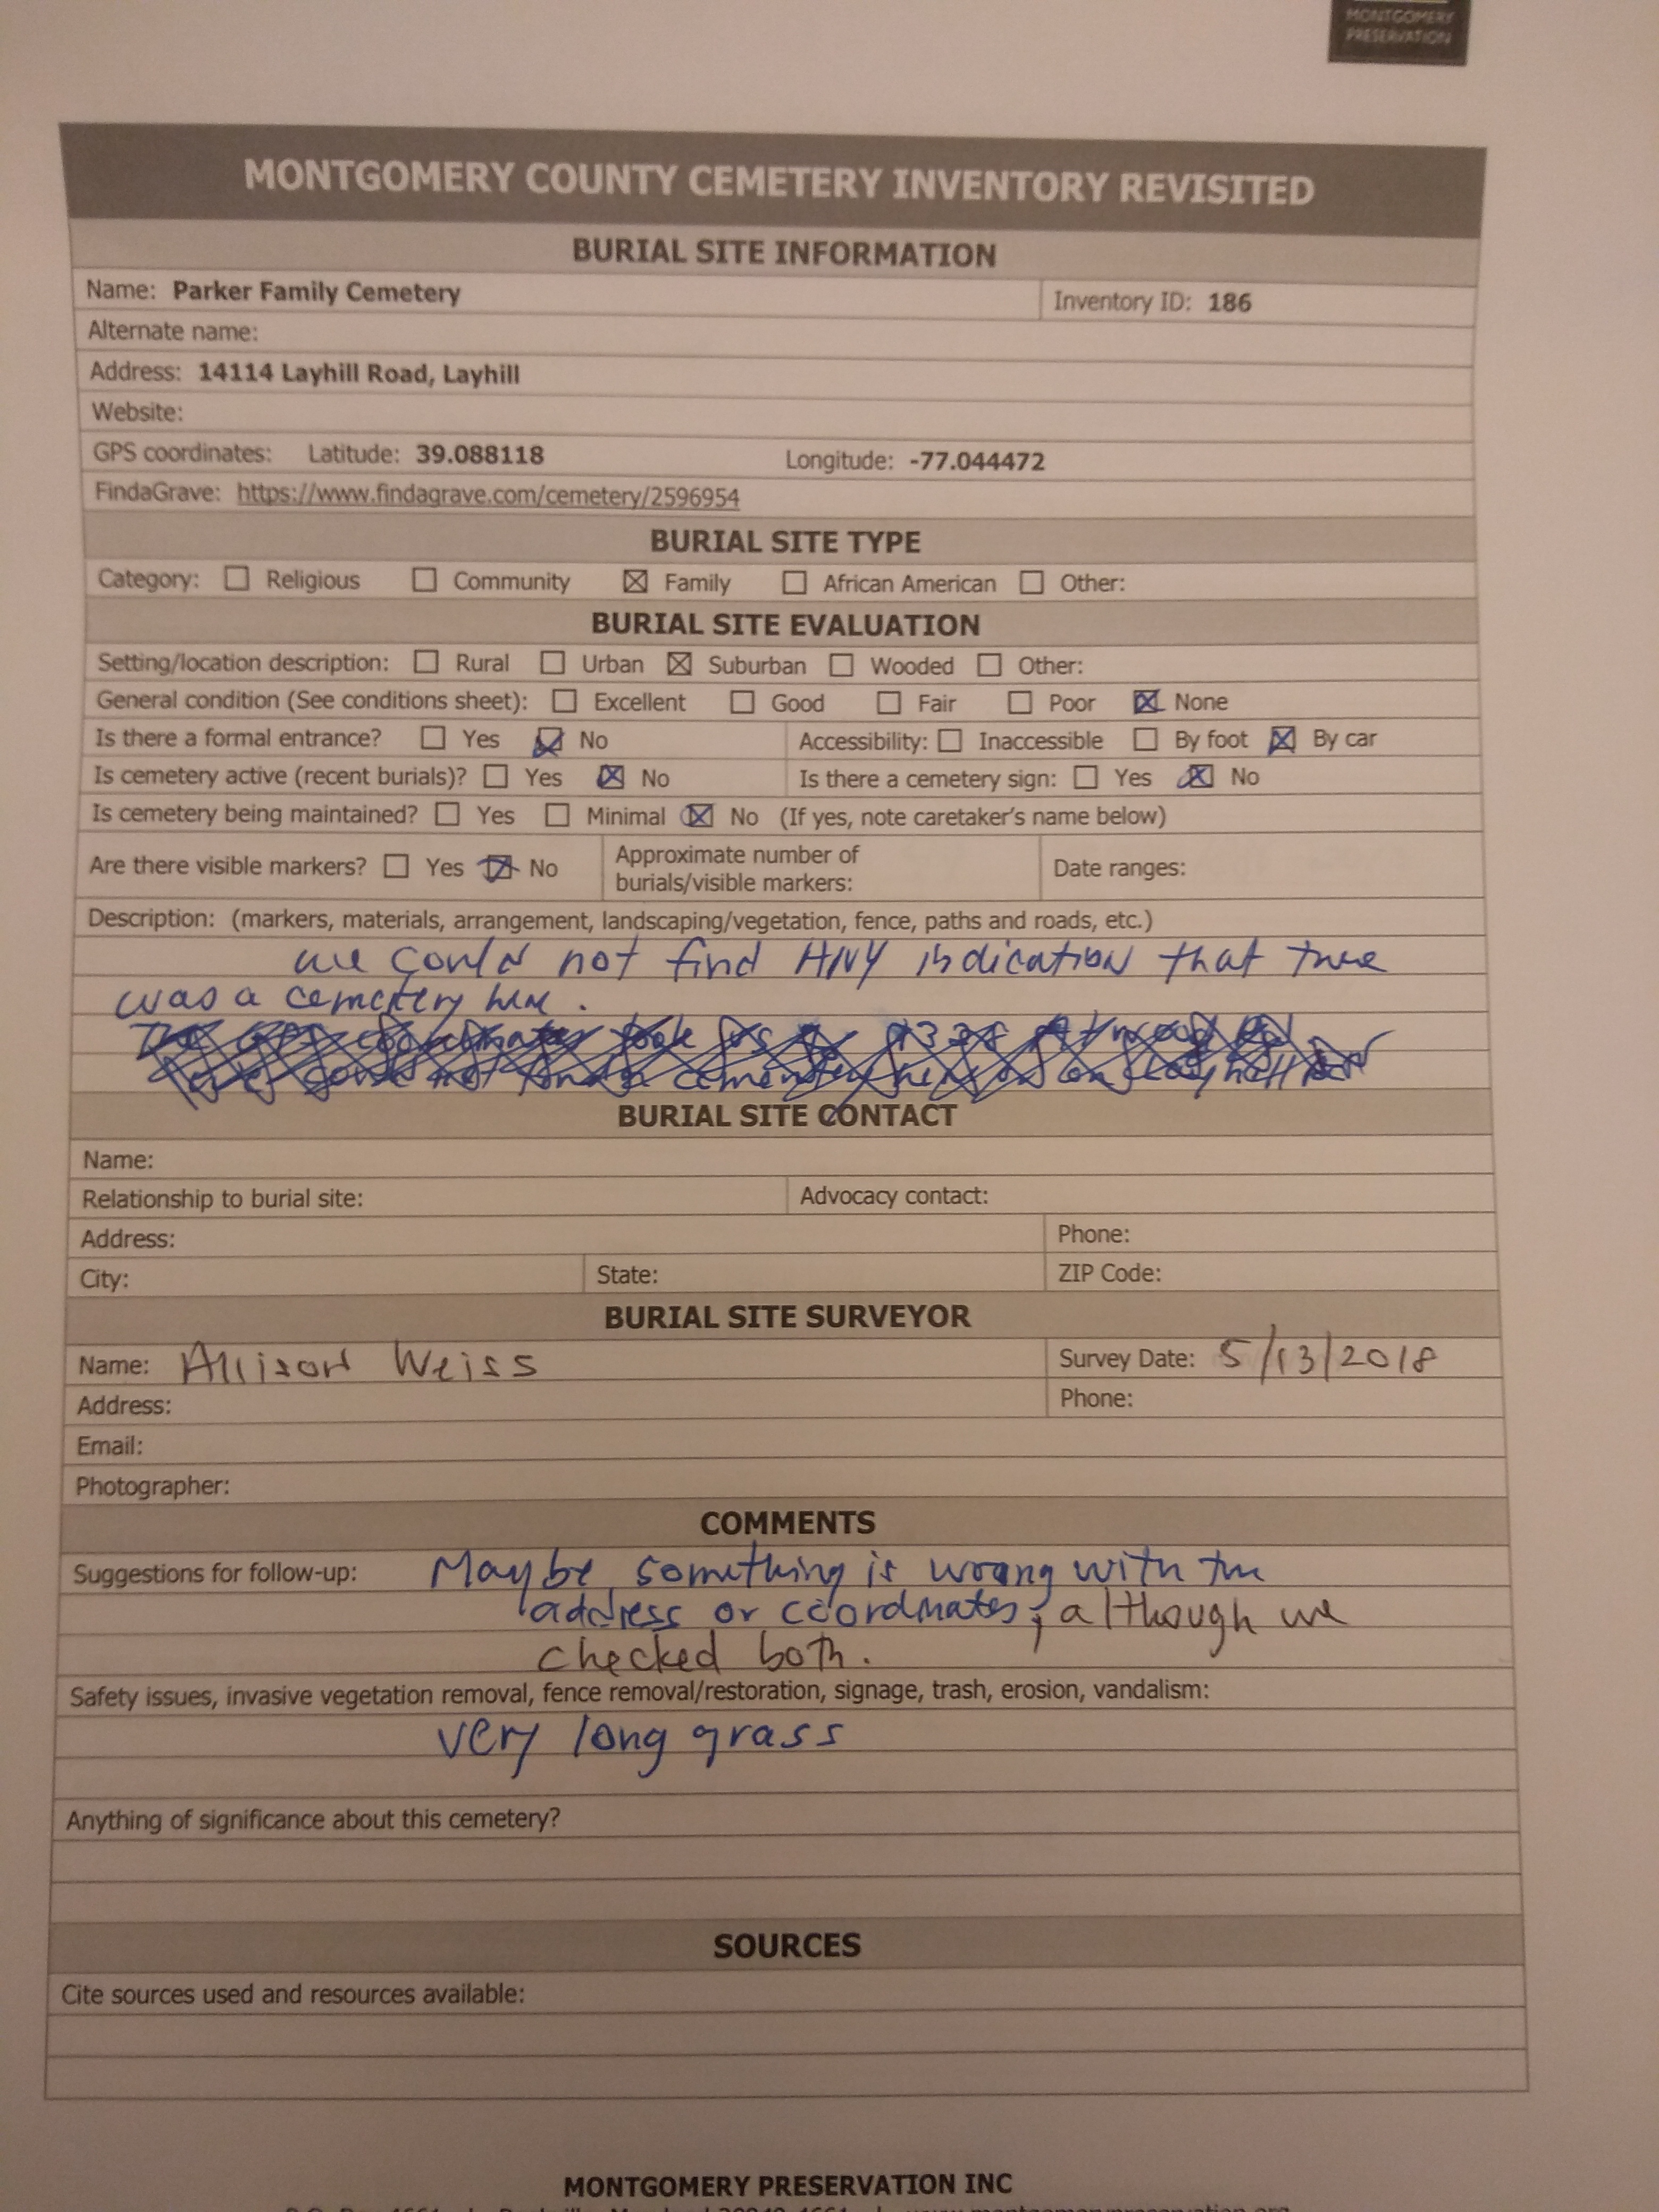 MONTGOMERY
PRESERVATION
MONTGOMERY COUNTY CEMETERY INVENTORY REVISITED
BURIAL SITE INFORMATION
Name: Parker Family Cemetery Inventory ID: 186
Alternate name:
Address: 14114 Layhill Road, Layhill
Website:
GPS coordinates: Latitude: 39.088118 Longitude: -77.044472
FindaGrave: https://www.findagrave.com/cemetery/2596954
BURIAL SITE TYPE
Category: ☐ Religious ☐ Community ☒ Family ☐ African American ☐ Other:
BURIAL SITE EVALUATION
Setting/location description: ☐ Rural ☐ Urban ☒ Suburban ☐ Wooded ☐ Other:
General condition (See conditions sheet): ☐ Excellent ☐ Good ☐ Fair ☐ Poor ☒ None
Is there a formal entrance? ☐ Yes ☒ No Accessibility: ☐ Inaccessible ☐ By foot ☒ By car
Is cemetery active (recent burials)? ☐ Yes ☒ No Is there a cemetery sign: ☐ Yes ☒ No
Is cemetery being maintained? ☐ Yes ☐ Minimal ☒ No (If yes, note caretaker's name below)
Are there visible markers? ☐ Yes ☒ No Approximate number of
burials/visible markers: Date ranges:
Description: (markers, materials, arrangement, landscaping/vegetation, fence, paths and roads, etc.)
we could not find ANY indication that there
was a cemetery here.
The GPS coordinates took us to
we could not find a cemetery
BURIAL SITE CONTACT
Name:
Relationship to burial site: Advocacy contact:
Address: Phone:
City: State: ZIP Code:
BURIAL SITE SURVEYOR
Name: Allison Weiss Survey Date: 5/13/2018
Address: Phone:
Email:
Photographer:
COMMENTS
Suggestions for follow-up: Maybe something is wrong with the
address or coordinates; although we
checked both.
Safety issues, invasive vegetation removal, fence removal/restoration, signage, trash, erosion, vandalism:
very long grass
Anything of significance about this cemetery?
SOURCES
Cite sources used and resources available:
MONTGOMERY PRESERVATION INC